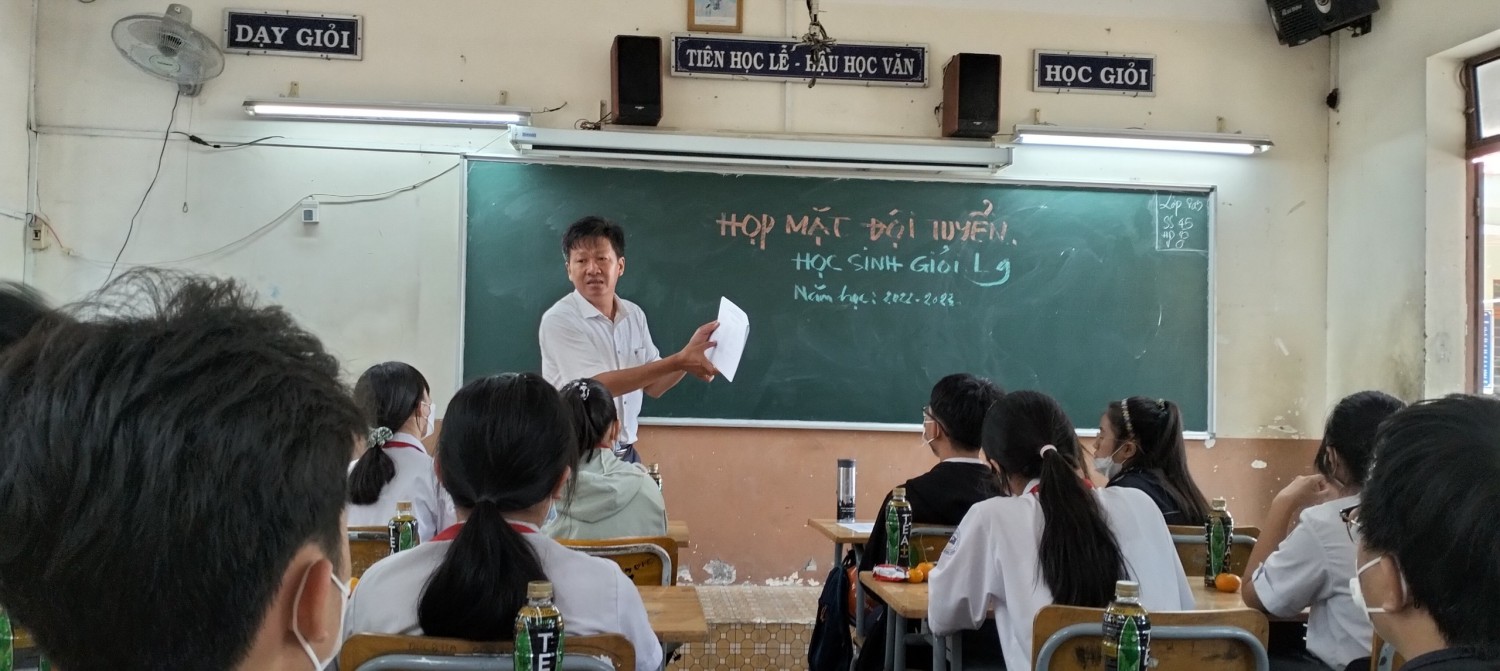 DẠY GIỎI
TIÊN HỌC LỄ - HẬU HỌC VĂN
HỌC GIỎI
HỌP MẶT ĐỘI TUYỂN.
HỌC SINH GIỎI Lý
Năm học: 2022-2023
Lớp
SS 45
TEA+
TEA
TE